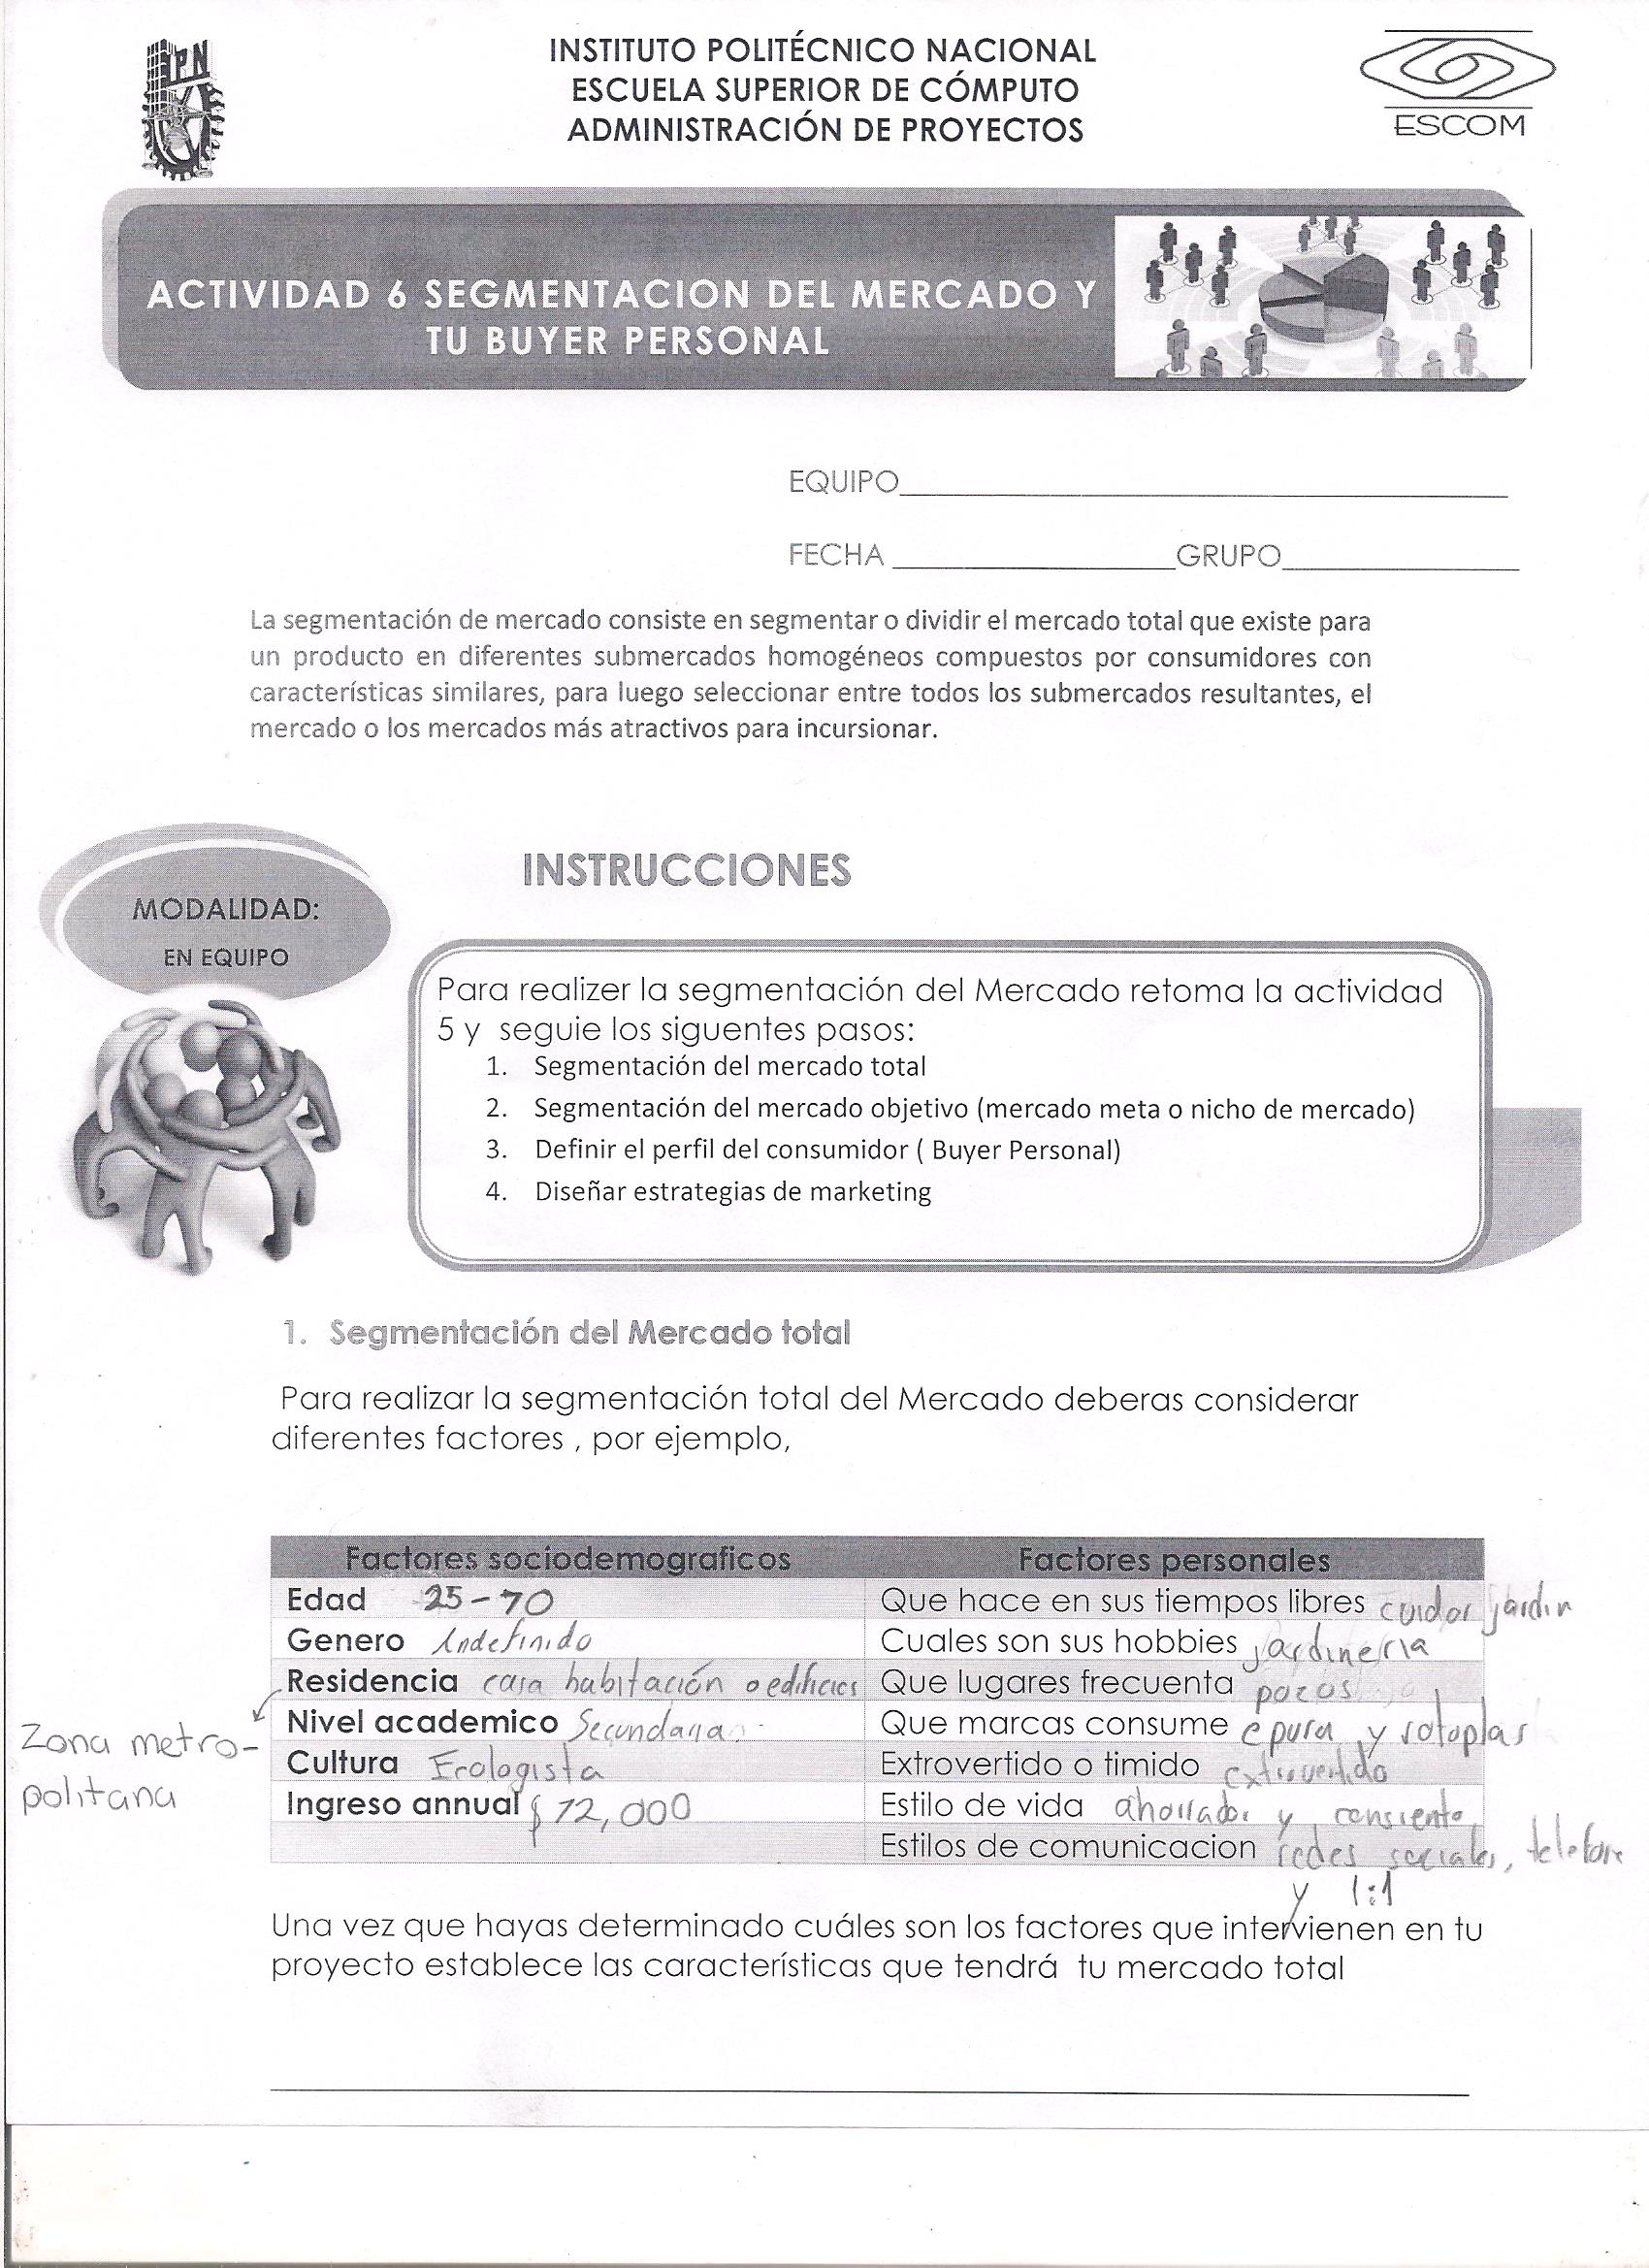 IPN
INSTITUTO POLITÉCNICO NACIONAL
ESCUELA SUPERIOR DE CÓMPUTO
ADMINISTRACIÓN DE PROYECTOS
ESCOM
ACTIVIDAD 6 SEGMENTACION DEL MERCADO Y
TU BUYER PERSONAL
EQUIPO
FECHA GRUPO
La segmentación de mercado consiste en segmentar o dividir el mercado total que existe para
un producto en diferentes submercados homogéneos compuestos por consumidores con
características similares, para luego seleccionar entre todos los submercados resultantes, el
mercado o los mercados más atractivos para incursionar.
MODALIDAD:
EN EQUIPO
INSTRUCCIONES
Para realizer la segmentación del Mercado retoma la actividad
5 y seguie los siguentes pasos:
1. Segmentación del mercado total
2. Segmentación del mercado objetivo (mercado meta o nicho de mercado)
3. Definir el perfil del consumidor ( Buyer Personal)
4. Diseñar estrategias de marketing
1. Segmentación del Mercado total
Para realizar la segmentación total del Mercado deberas considerar
diferentes factores , por ejemplo,
Factores sociodemograficos Factores personales
Edad 25-70 Que hace en sus tiempos libres cuidar jardin
Genero Indefinido Cuales son sus hobbies jardineria
Residencia casa habitación o edificios Que lugares frecuenta pozos
Nivel academico Secundaria Que marcas consume epura y rotoplas
Zona metro-
politana
Cultura Ecologista Extrovertido o timido extrovertido
Ingreso annual $ 72,000 Estilo de vida ahorrador y consiente
Estilos de comunicacion redes sociales, telefono
y 1:1
Una vez que hayas determinado cuáles son los factores que intervienen en tu
proyecto establece las características que tendrá tu mercado total